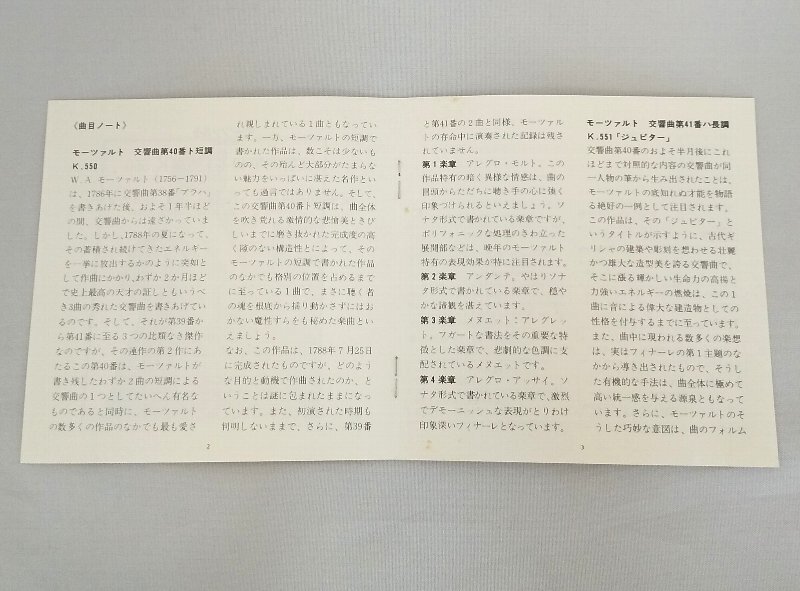 《曲目ノート》
モーツァルト 交響曲第40番ト短調
K.550
W.A.モーツァルト(1756―1791)
は、1786年に交響曲第38番"プラハ"
を書きあげた後、およそ1年半ほど
の間、交響曲からは遠ざかっていま
した。しかし、1788年の夏になって、
その蓄積され続けてきたエネルギー
を一挙に放出するかのように突如と
して作曲にかかり、わずか2か月ほど
で史上最高の天才の証しともいうべ
き3曲の秀れた交響曲を書きあげてい
るのです。そして、それが第39番か
ら第41番に至る3つの比類なき傑作
なのですが、その連作の第2作にあ
たるこの第40番は、モーツァルトが
書き残したわずか2曲の短調による
交響曲の1つとしてたいへん有名な
ものであると同時に、モーツァルト
の数多くの作品のなかでも最も愛さ
れ親しまれている1曲ともなってい
ます。一方、モーツァルトの短調で
書かれた作品は、数こそは少ないも
のの、その殆んど大部分がたまらな
い魅力をいっぱいに湛えた名作とい
っても過言ではありません。そして、
この交響曲第40番ト短調は、曲全体
を吹き荒れる激情的な悲愴美ときび
しいまでに磨き抜かれた完成度の高
く隙のない構造性とによって、その
モーツァルトの短調で書かれた作品
のなかでも格別の位置を占めるまで
に至っている1曲で、まさに聴く者
の魂を根底から揺り動かさずにはお
かない魔性すらをも秘めた楽曲とい
えましょう。
なお、この作品は、1788年7月25日
に完成されたものですが、どのよう
な目的と動機で作曲されたのか、と
いうことは謎に包まれたままになっ
ています。また、初演された時期も
判明しないままで、さらに、第39番
2
と第41番の2曲と同様、モーツァル
トの存命中に演奏された記録は残さ
れていません。
第1楽章 アレグロ・モルト。この
作品特有の暗く異様な情感は、曲の
冒頭からただちに聴き手の心に強く
印象づけられるといえましょう。ソ
ナタ形式で書かれている楽章ですが、
ポリフォニックな処理のきわ立った
展開部などは、晩年のモーツァルト
特有の表現効果が特に注目されます。
第2楽章 アンダンテ。やはりソナ
タ形式で書かれている楽章で、穏や
かな諦観を湛えています。
第3楽章 メヌエット:アレグレッ
ト。フガートな書法をその重要な特
徴とした楽章で、悲劇的な色調に支
配されているメヌエットです。
第4楽章 アレグロ・アッサイ。ソ
ナタ形式で書かれている楽章で、激烈
でデモーニッシュな表現がとりわけ
印象深いフィナーレとなっています。
モーツァルト 交響曲第41番ハ長調
K.551「ジュピター」
交響曲第40番のおよそ半月後にこれ
ほどまで対照的な内容の交響曲が同
一人物の筆から生み出されたことは、
モーツァルトの底知れぬ才能を物語
る絶好の一例として注目されます。
この作品は、その「ジュピター」と
いうタイトルが示すように、古代ギ
リシャの建築や彫刻を想わせる壮麗
かつ雄大な造型美を誇る交響曲で、
そこに漲る輝かしい生命力の高揚と
力強いエネルギーの燃焼は、この1
曲に音による偉大な建造物としての
性格を付与するまでに至っています。
また、曲中に現われる数多くの楽想
は、実はフィナーレの第1主題のな
かから導き出されたもので、そうし
た有機的な手法は、曲全体に極めて
高い統一感を与える源泉ともなって
います。さらに、モーツァルトのそ
うした巧妙な意図は、曲のフォルム
3